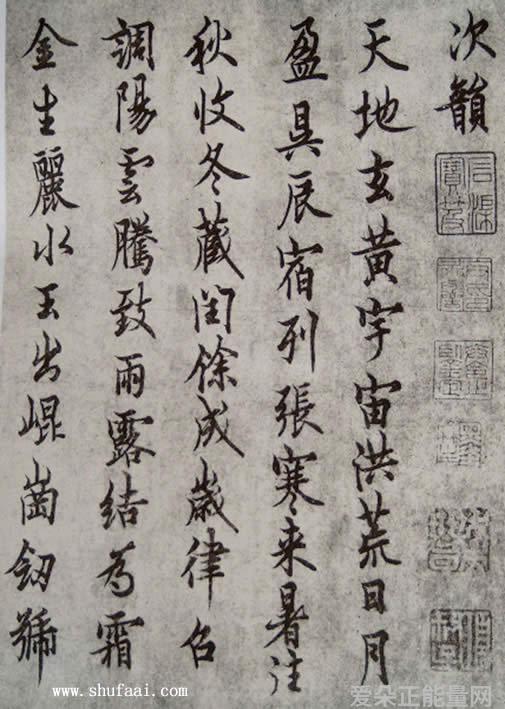 次韻
天地玄黄宇宙洪荒日月
盈昃辰宿列張寒来暑往
秋收冬蔵閏馀成歲律召
調陽雲騰致雨露結為霜
金生麗水玉出崐崗劔號
www.shufaai.com
爱朵正能量网